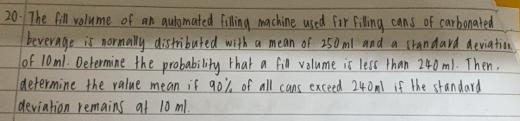 20. The fill volume of an automated filling machine used for filling cans of carbonated
beverage is normally distributed with a mean of 250 ml and a standard deviation
of 10 ml. Determine the probability that a fill volume is less than 240 ml. Then,
determine the value mean if 90% of all cans exceed 240 ml if the standard
deviation remains at 10 ml.